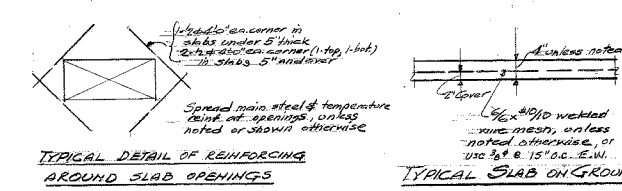 1-½φ4'0" ea. corner in
slabs under 5" thick
2-½φ4'0" ea. corner (1-top, 1-bot.)
in slabs 5" and over
Spread main steel & temperature
reinf at openings, unless
noted or shown otherwise
TYPICAL DETAIL OF REINFORCING
AROUND SLAB OPENINGS
4" unless noted
2" Cover
6/6x #10/10 welded
wire mesh, unless
noted otherwise, or
use @ 15" o.c. E.W.
TYPICAL SLAB ON GROUN